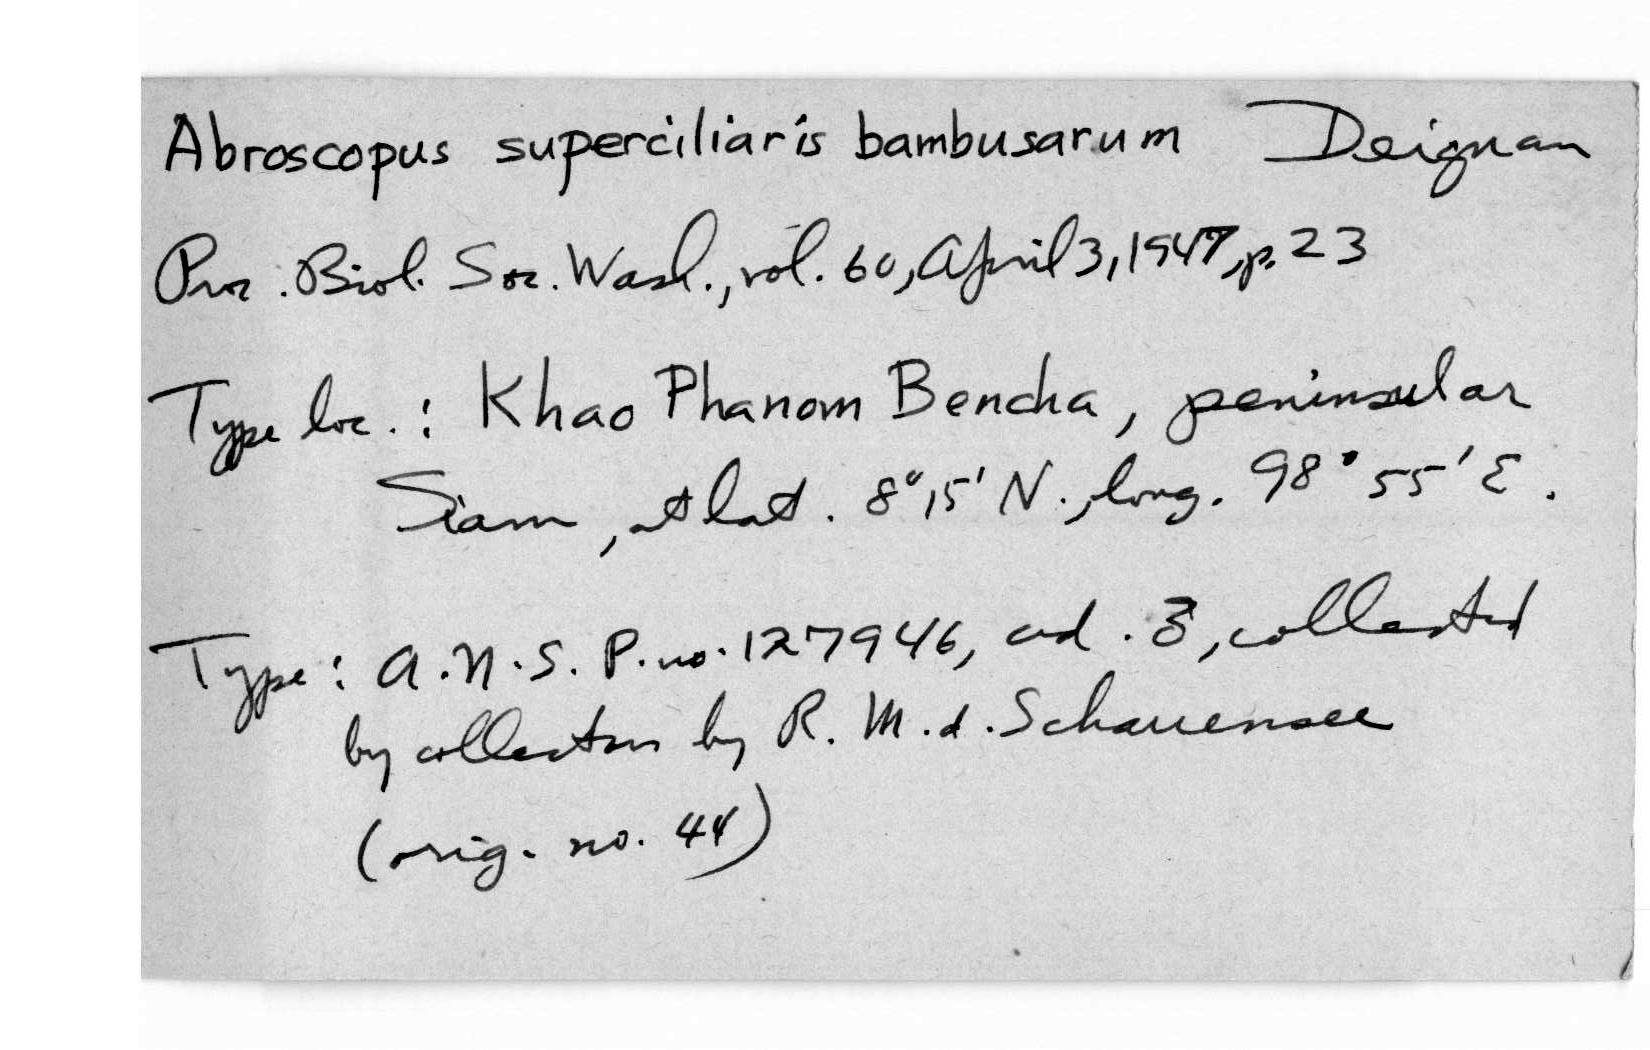 Abroscopus superciliaris bambusarum Deignan
Proc. Biol. Soc. Wash., vol. 60, April 3, 1947, p. 23
Type loc.: Khao Phanom Bencha, peninsular
Siam, at lat. 8°15' N., long. 98° 55' E.
Type: A.N.S.P. no. 127946, ad. ♂, collected
by collectors by R. M. d. Schauensee
(orig. no. 44)